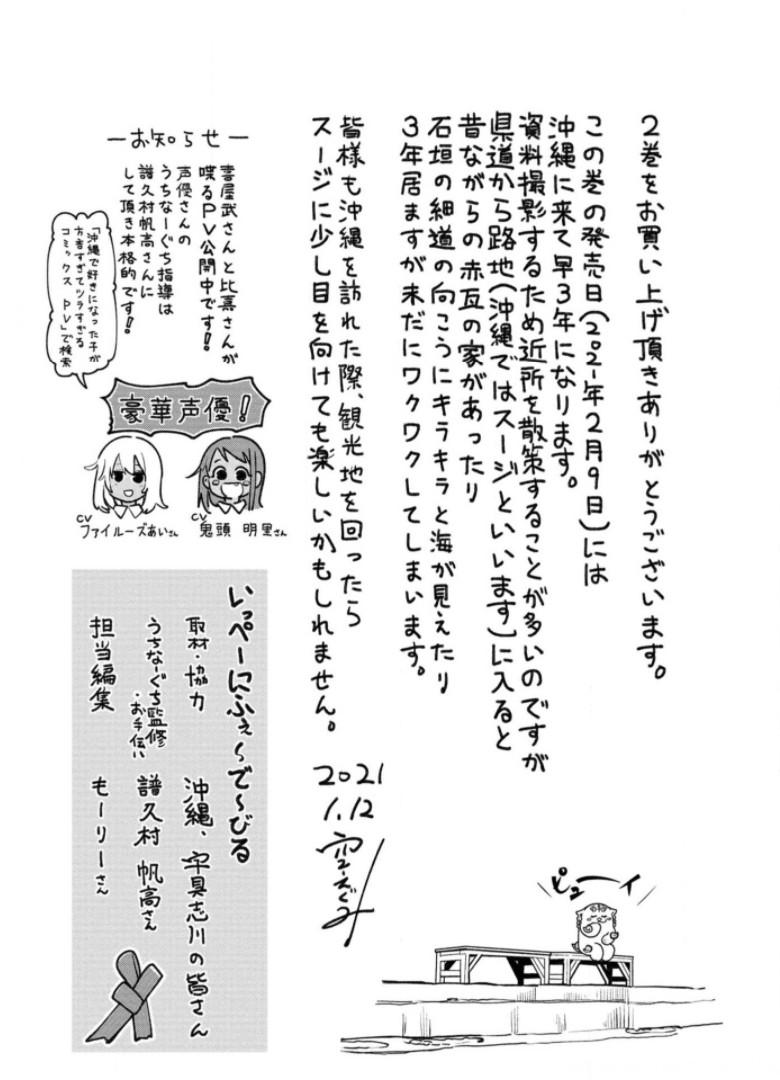 2巻をお買い上げ頂きありがとうございます。
この巻の発売日(2021年2月9日)には
沖縄に来て早3年になります。
資料撮影するため近所を散策することが多いのですが
県道から路地(沖縄ではスージといいます)に入ると
昔ながらの赤瓦の家があったり
石垣の細道の向こうにキラキラと海が見えたり
3年居ますが未だにワクワクしてしまいます。
皆様も沖縄を訪れた際、観光地を回ったら
スージに少し目を向けても楽しいかもしれません。
2021
1.12
空えぐみ
ピューイ
ーお知らせー
喜屋武さんと比嘉さんが
喋るPV公開中です!!
声優さんの
うちなーぐち指導は
譜久村帆高さんに
して頂き本格的です!!
「沖縄で好きになった子が
方言すぎてツラすぎる
コミックス PV」で検索
豪華声優!
CV
鬼頭 明里さん
CV
ファイルーズあいさん
いっぺーにふぇ〜で〜びる
取材・協力 沖縄、宇具志川の皆さん
うちなーぐち監修・お手伝い 譜久村 帆高さん
担当編集 もーりーさん